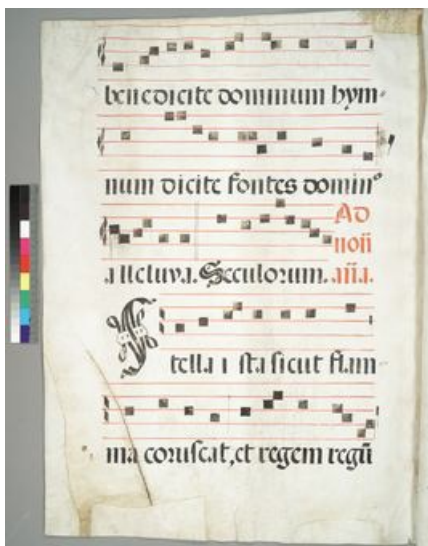 benedicite dominum hym-
num dicite fontes dominº
alleluya. Seculorum. Ad noñ añа.
Stella ista sicut flam
ma coruscat, et regem regū